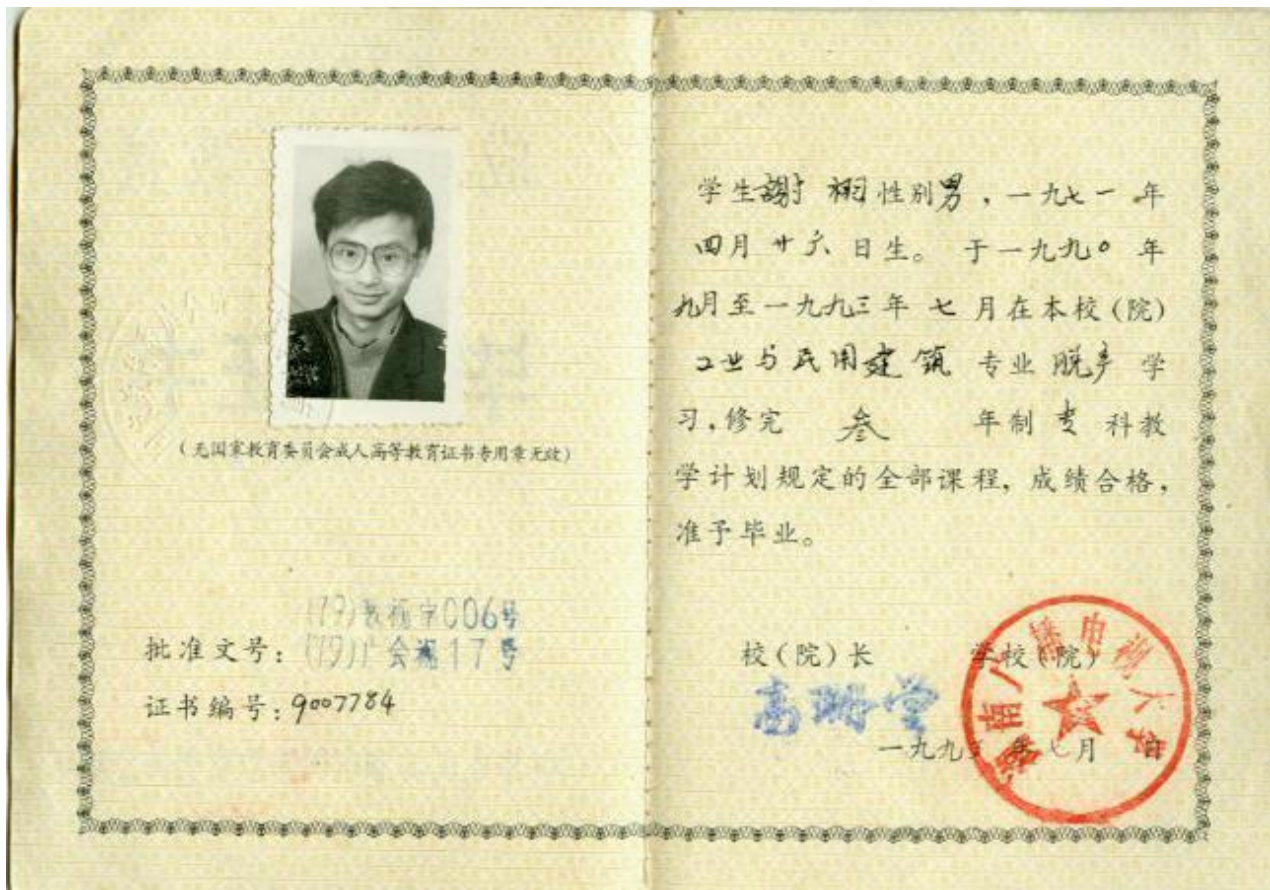 (无国家教育委员会成人高等教育证书专用章无效)
(79)教福字006号
批准文号:(79)广会 17号
证书编号:9007784
学生謝 栩性别男,一九七一年
四月廿六日生。于一九九〇年
九月至一九九三年七月在本校(院)
工业与民用建筑专业脱产学
习,修完 叁 年制专科教
学计划规定的全部课程,成绩合格,
准予毕业。
校(院)长 学校(院)
高
湖南广播电视大学
一九九三年七月 日